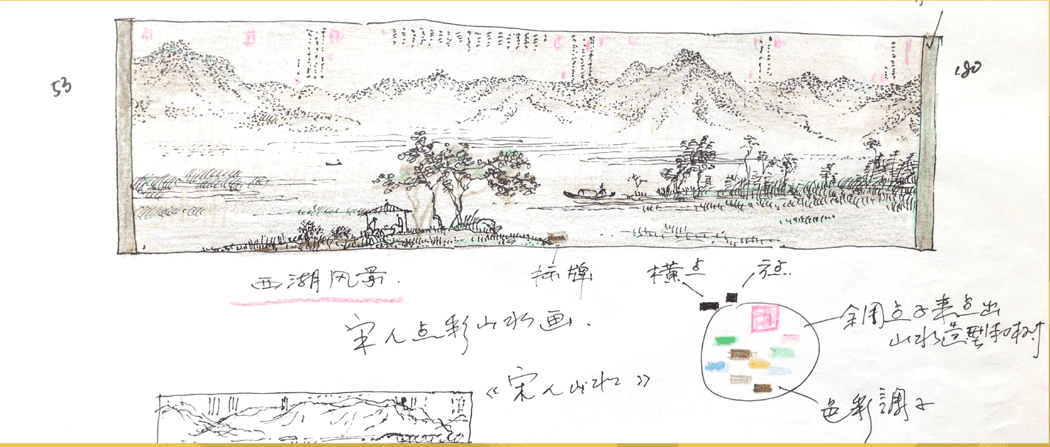 53
180
西湖风景.
标牌
横点
方点
宋人点彩山水画.
全用点子来点出
山水造型和树
《宋人山水》
色彩调子